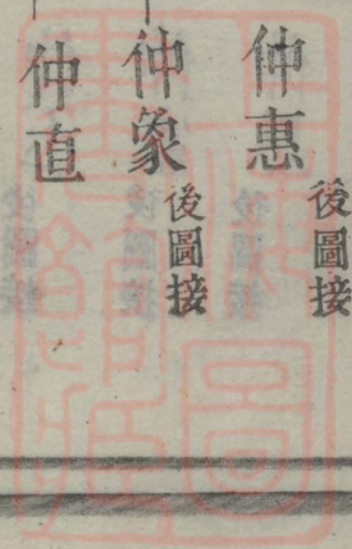 仲惠 後圖接
仲象 後圖接
仲直